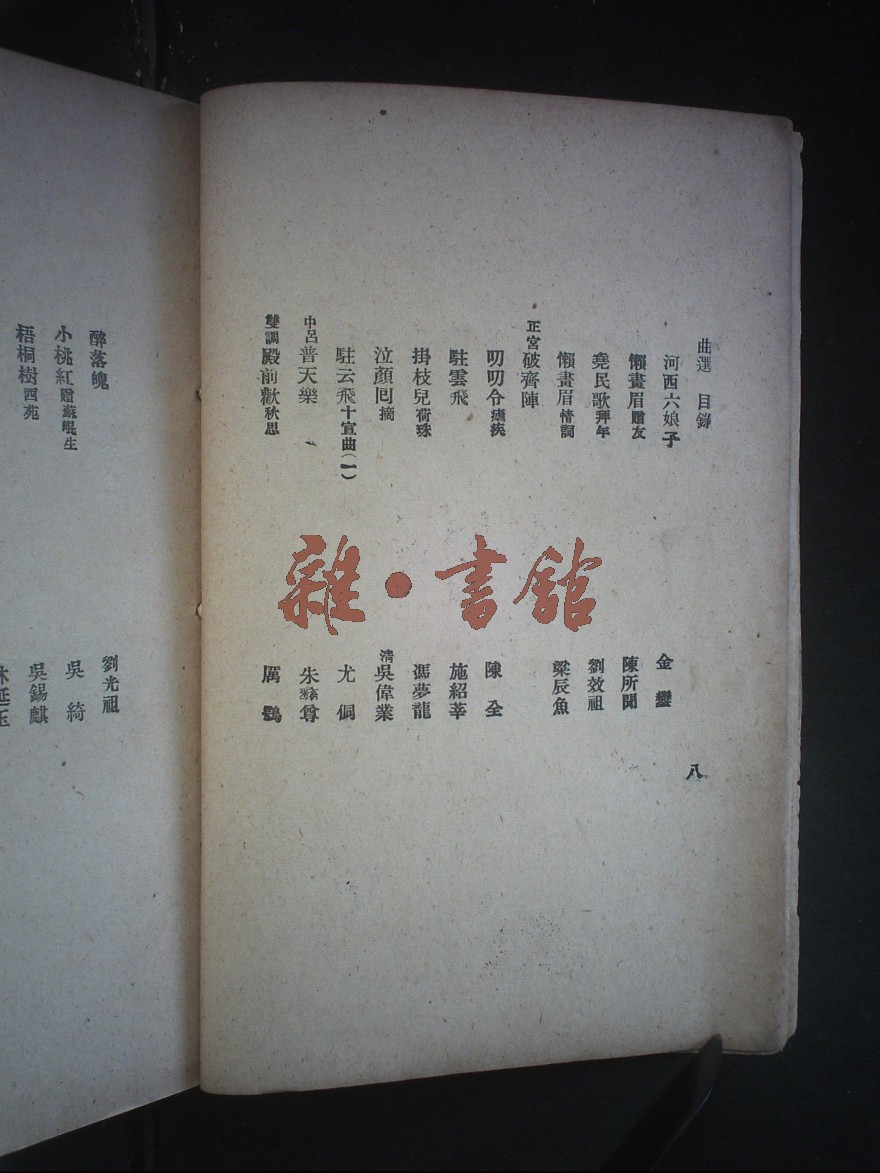 曲選 目錄
河西六娘子 金鑾
懶畫眉贈友 陳所聞
堯民歌拜年 劉效祖
懶畫眉情詞 梁辰魚
正宮破齊陣
叨叨令瘧疾 陳全
駐雲飛 施紹莘
掛枝兒荷珠 馮夢龍
泣顏回摘 清吳偉業
駐云飛十宣曲(一) 尤侗
中呂普天樂 朱彝尊
雙調殿前歡秋思 厲鶚
八
醉落魄 劉光祖
小桃紅贈蘇崐生 吳綺
梧桐樹西苑 吳錫麒
林廷玉
雜·書館